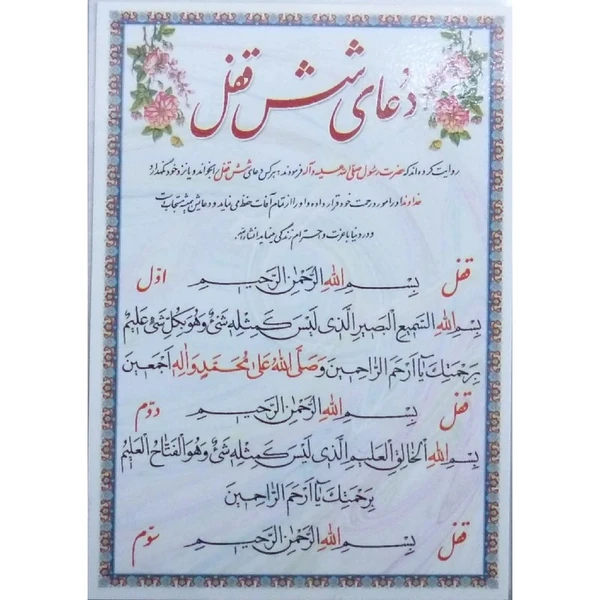 دُعای شش قفل
روایت کرده‌اند که حضرت رسول صلی الله علیه و آله فرمودند: هر کس دعای شش قفل را بخواند و یا نزد خود نگهدارد
خداوند او را مورد رحمت خود قرار داده و او را از تمام آفات حفظ می نماید و دعایش همیشه مستجاب است
و در دنیا با عزت و احترام زندگی مینماید انشاءالله.
قفل بِسْمِ اللهِ الرَّحْمٰنِ الرَّحیمِ اوّل
بِسْمِ اللهِ السَّمیعِ الْبَصیرِ الَّذی لَیْسَ کَمِثْلِهِ شَیْئٌ وَهُوَ بِکُلِّ شَیْئٍ عَلیمٌ
بِرَحْمَتِکَ یٰا اَرْحَمَ الرّٰاحِمینَ وَصَلَّی اللهُ عَلیٰ مُحَمَّدٍ وَ اٰلِهِ اَجْمَعینَ
قفل بِسْمِ اللهِ الرَّحْمٰنِ الرَّحیمِ دوّم
بِسْمِ اللهِ الْخٰالِقِ الْعَلیمِ الَّذی لَیْسَ کَمِثْلِهِ شَیْئٌ وَهُوَ الْفَتّٰاحُ الْعَلیمُ
بِرَحْمَتِکَ یٰا اَرْحَمَ الرّٰاحِمینَ
قفل بِسْمِ اللهِ الرَّحْمٰنِ الرَّحیمِ سوّم